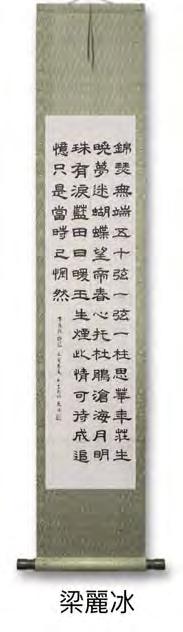 錦瑟無端五十弦一弦一柱思華年莊生
曉夢迷蝴蝶望帝春心托杜鵑滄海月明
珠有淚藍田日暖玉生煙此情可待成追
憶只是當時已惘然
梁麗冰